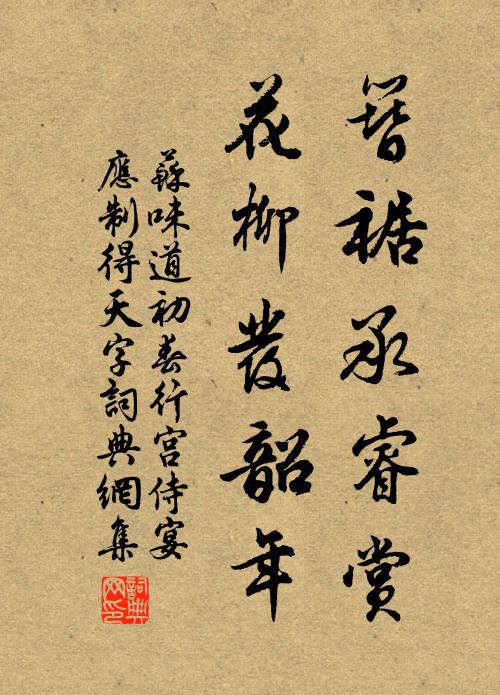 簪裾承睿賞
花柳發韶年
蘇味道初春行宮侍宴
應制得天字詞典網集
詞典网印